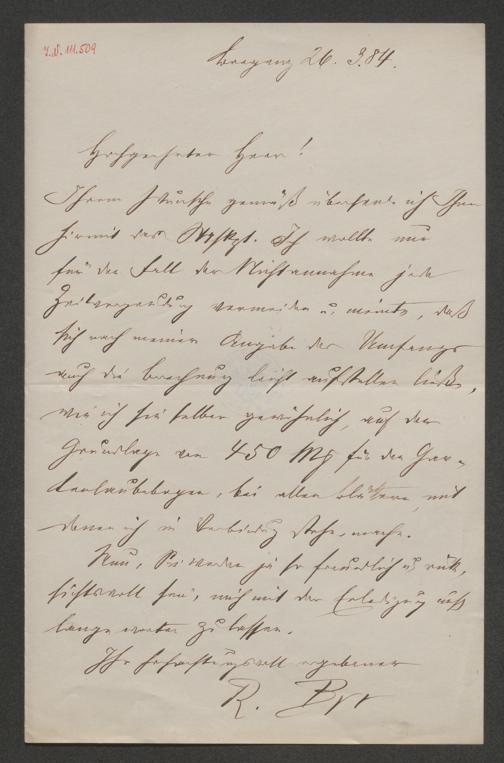 I.N. 111.509
Bregenz 26. 3. 84.
Hochgeehrter Herr!
Ihrem Wunsche gemäß übersende ich Ihnen
hiermit das Mskpt. Ich wollte nur
für den Fall der Nichtannahme jede
Zeitvergeudung vermeiden u. meinte, daß
sich nach meiner Angabe des Umfangs
auch die Berechnung leicht aufstellen ließe,
wie ich sie selber gewöhnlich auf der
Grundlage von 450 Mk für den Gar-
tenlaubebogen, bei allen Blättern, mit
denen ich in Verbindung stehe, mache.
Nun, Sie werden ja so freundlich u. rück-
sichtsvoll sein, mich mit der Erledigung nicht
lange warten zu lassen.
Ihr hochachtungsvoll ergebener
R. Byr